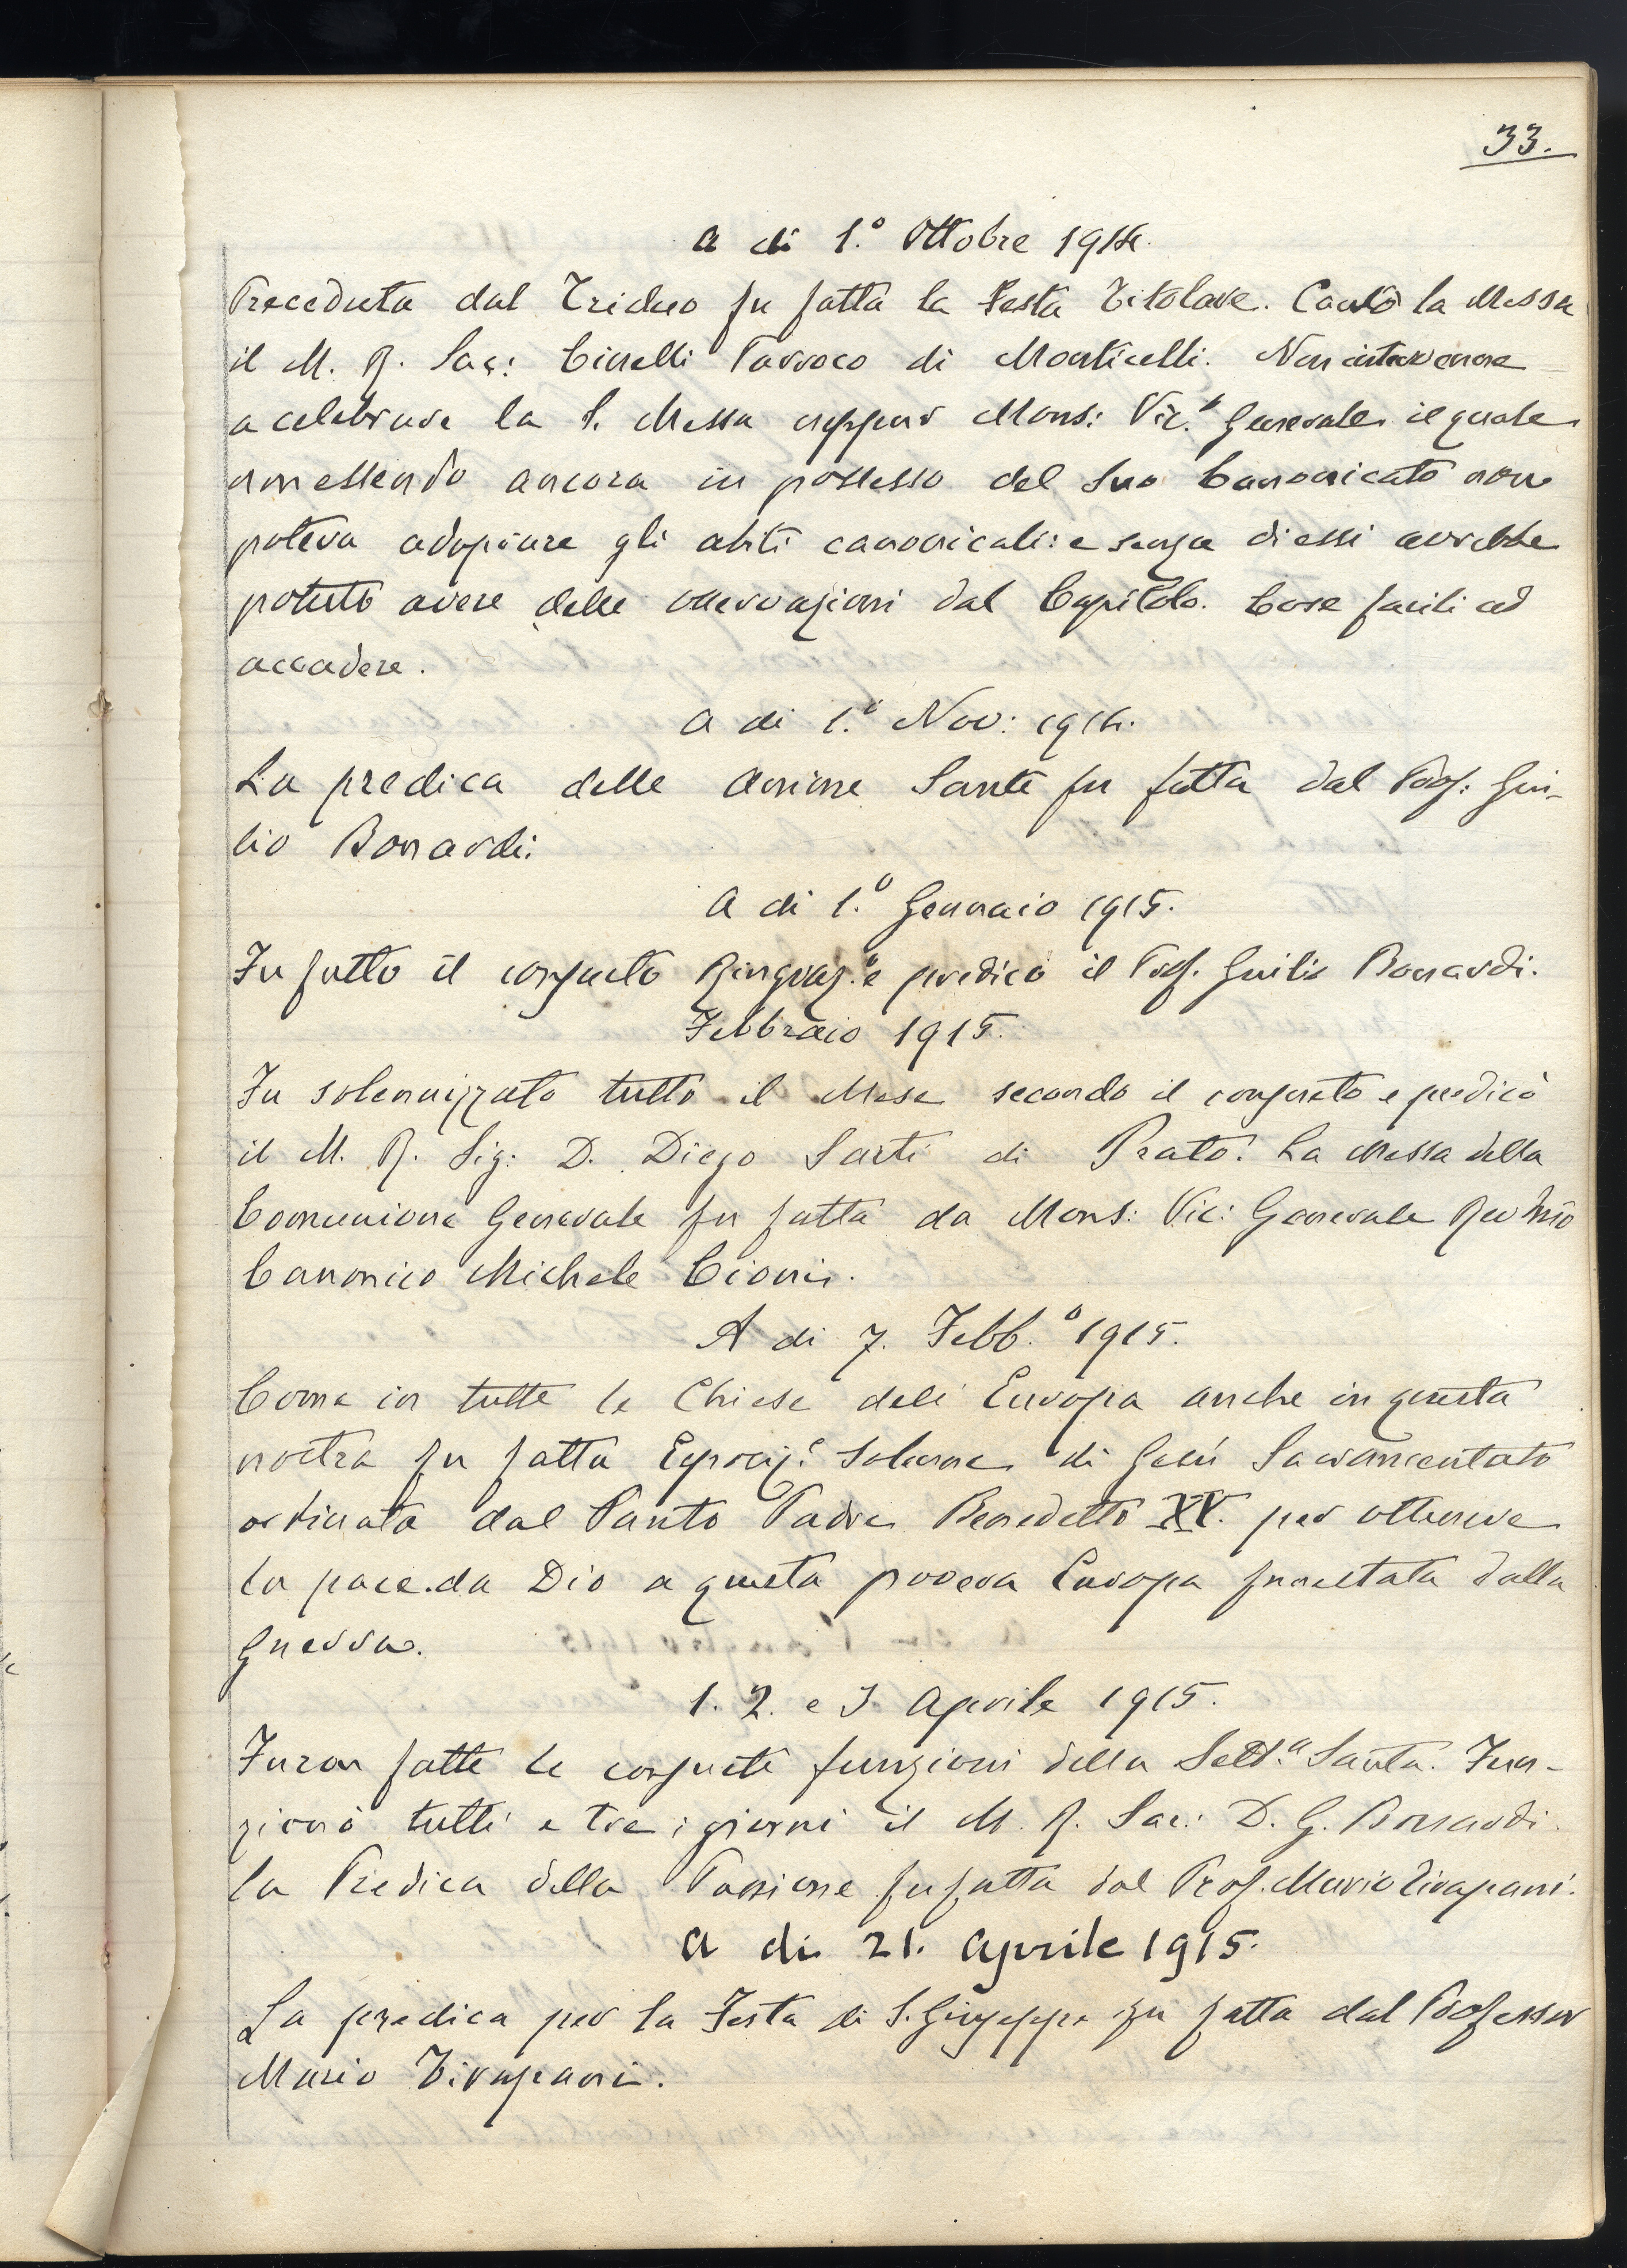 33.
a di 1.º Ottobre 1914.
Preceduta dal Triduo fu fatta la Festa Titolare. Cantò la Messa
il M. R. Sac: Cinelli Parroco di Monticelli. Non intervenne
a celebrare la S. Messa neppur Mons: Vic.º Generale il quale
non essendo ancora in possesso del suo Canonicato non
poteva adoprare gli abiti canonicali: e senza di essi avrebbe
potuto avere delle osservazioni dal Capitolo. Cose facili ad
accadere.
a di 1.º Nov: 1914.
La predica delle Anime Sante fu fatta dal Prof: Giu-
lio Bonardi.
a di 1.º Gennaio 1915.
Fu fatto il consueto Ringraz.º e predicò il Prof. Giulio Bonardi.
Febbraio 1915.
Fu solennizzato tutto il Mese secondo il consueto e predicò
il M. R. Sig: D. Diego Sarti di Prato. La Messa della
Comunione Generale fu fatta da Mons: Vic: Generale
Canonico Michele Cioni.
A di 7. Febb.º 1915.
Come in tutte le Chiese dell'Europa anche in questa
nostra fu fatta Esposiz.e Solenne di Gesù Sacramentato
ordinata dal Santo Padre Benedetto XV. per ottenere
la pace da Dio a questa povera Europa funestata dalla
Guerra.
1. 2. e 3 Aprile 1915.
Furon fatte le consuete funzioni della Sett.a Santa. Fun-
zionò tutti e tre i giorni il M. R. Sac: D. G. Bonardi.
la Predica della Passione fu fatta dal Prof. Mario Tirapani.
a di 21. Aprile 1915.
La predica per la Festa di S. Giuseppe fu fatta dal Professor
Mario Tirapani.